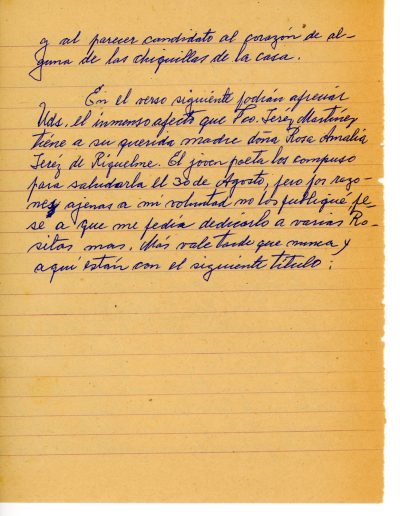 y al parecer candidato al corazón de al-
guna de las chiquillas de la casa.
En el verso siguiente podrán apreciar
Uds. el inmenso afecto que Fco. Jeréz Martínez
tiene a su querida madre doña Rosa Amalia
Jeréz de Riquelme. El joven poeta los compuso
para saludarla el 30 de Agosto, pero por razo-
nes ajenas a mi voluntad no los publiqué pe-
se a que me pedía dedicarlo a varias Ro-
sitas mas. Más vale tarde que nunca y
aquí están con el siguiente título: